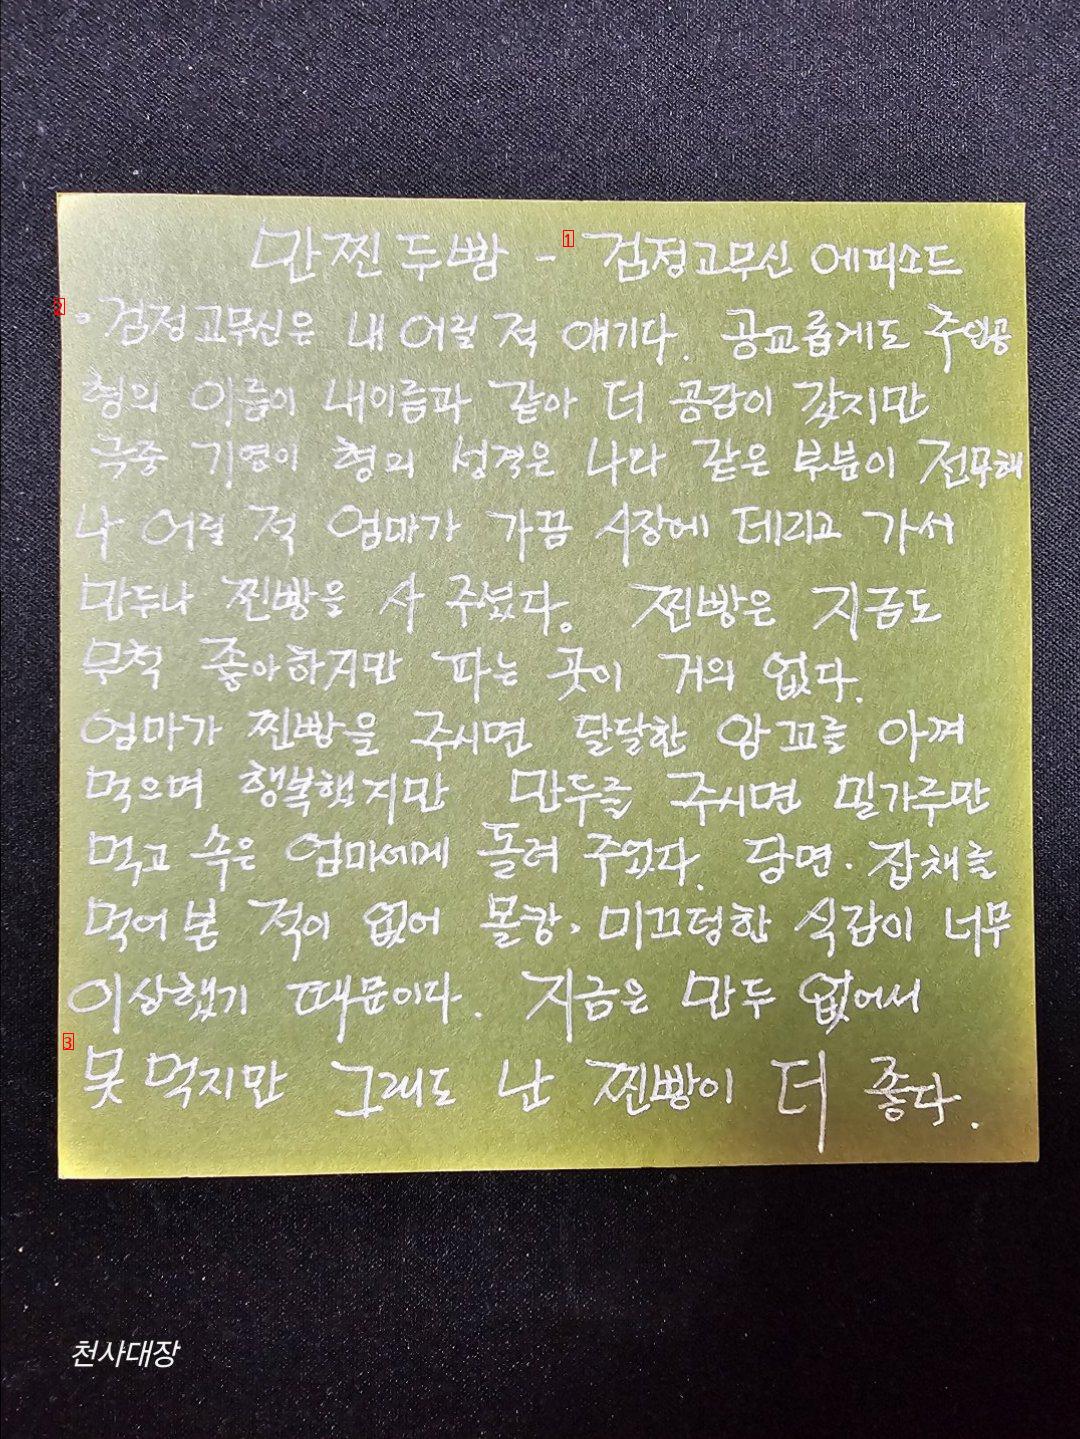 만찐두빵 - 검정고무신 에피소드
。검정고무신은 내 어릴 적 얘기다. 공교롭게도 주인공
형의 이름이 내이름과 같아 더 공감이 갔지만
극중 기영이 형의 성격은 나와 같은 부분이 전무해
나 어릴 적 엄마가 가끔 시장에 데리고 가서
만두나 찐빵을 사 주셨다。 찐빵은 지금도
무척 좋아하지만 파는 곳이 거의 없다.
엄마가 찐빵을 주시면 달달한 앙꼬를 아껴
먹으며 행복했지만 만두를 주시면 밀가루만
먹고 속은 엄마에게 돌려 주었다. 당면·잡채를
먹어본 적이 없어 물컹·미끄덩한 식감이 너무
이상했기 때문이다. 지금은 만두 없어서
못 먹지만 그래도 난 찐빵이 더 좋다.
천사대장